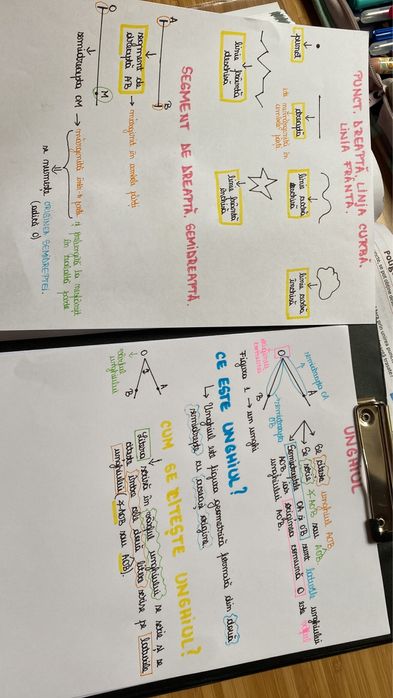 PUNCT. DREAPTĂ. LINIA CURBĂ.
LINIA FRÂNTĂ.
punct
dreaptă
linia curbă
deschisă
linia curbă
închisă
în ambele părți
linia frântă
deschisă
linia frântă
închisă
SEGMENT DE DREAPTĂ. SEMIDREAPTA.
A
B
segment de
dreaptă AB → mărginit în ambele părți
O
M
semidreapta OM → mărginită într-o parte și prelungită la nesfârșit
în cealaltă parte
se numește ORIGINEA SEMIDREPTEI.
(adică O)
UNGHIUL
semidreapta OA
O
A
B
originea
comună
semidreapta
OB
Figura 1 → un unghi
Se citește unghiul AOB
Se notează ∢AOB sau AOB
Semidreptele OA și OB sunt laturile unghiului
AOB, iar originea comună O este vârful
unghiului AOB.
CE ESTE UNGHIUL?
↳ Unghiul este figura geometrică formată din două
semidrepte cu aceeași origine.
CUM SE CITEȘTE UNGHIUL?
O
A
B
vârful
unghiului
Litera scrisă în vârful unghiului se scrie și se
citește între cele două litere scrise pe laturile
unghiului (∢AOB sau AOB).